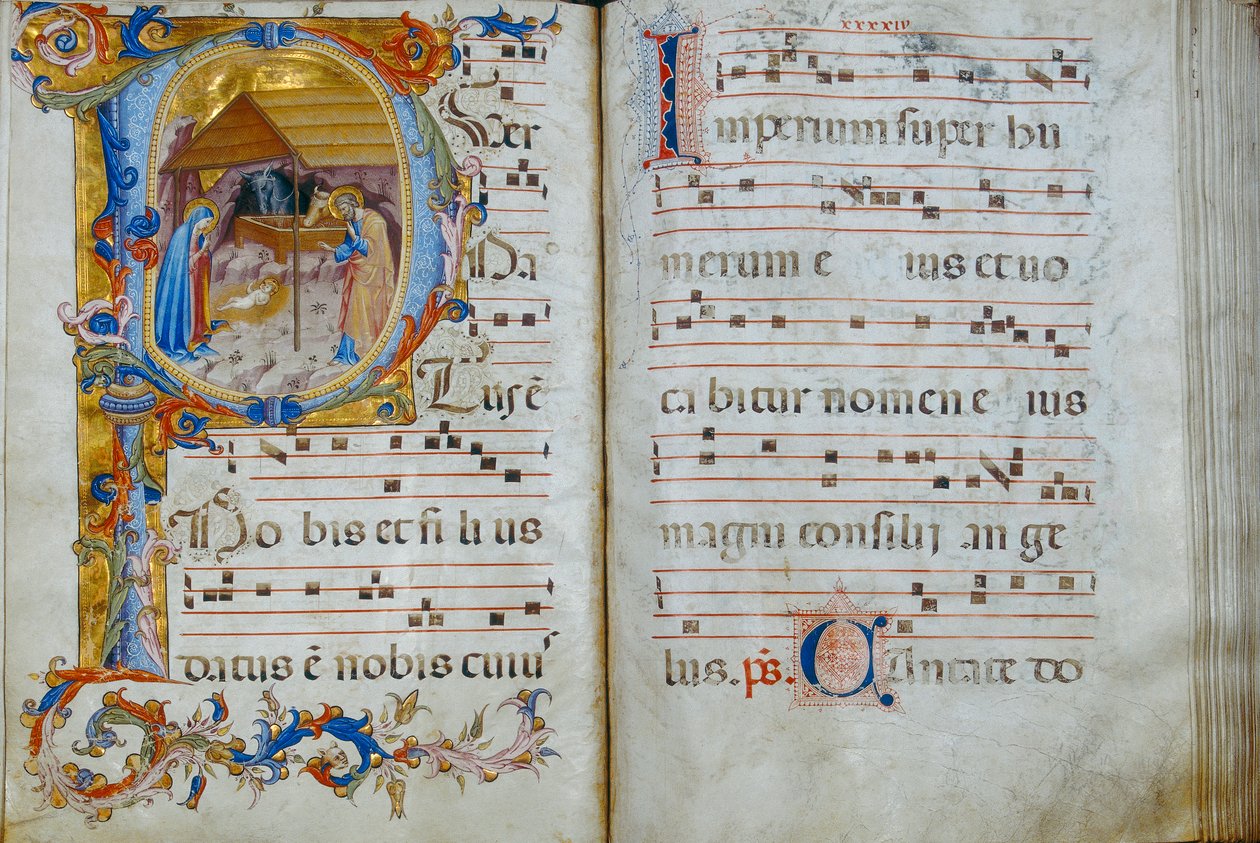 P
Ver
Na
tus ē
No bis et fi li us
datus ē nobis cuiu s
xxxxiv
Imperium super hu
merum e ius et uo
ca bitur nomen e ius
magni consilij an ge
lus. ps. CAntate do